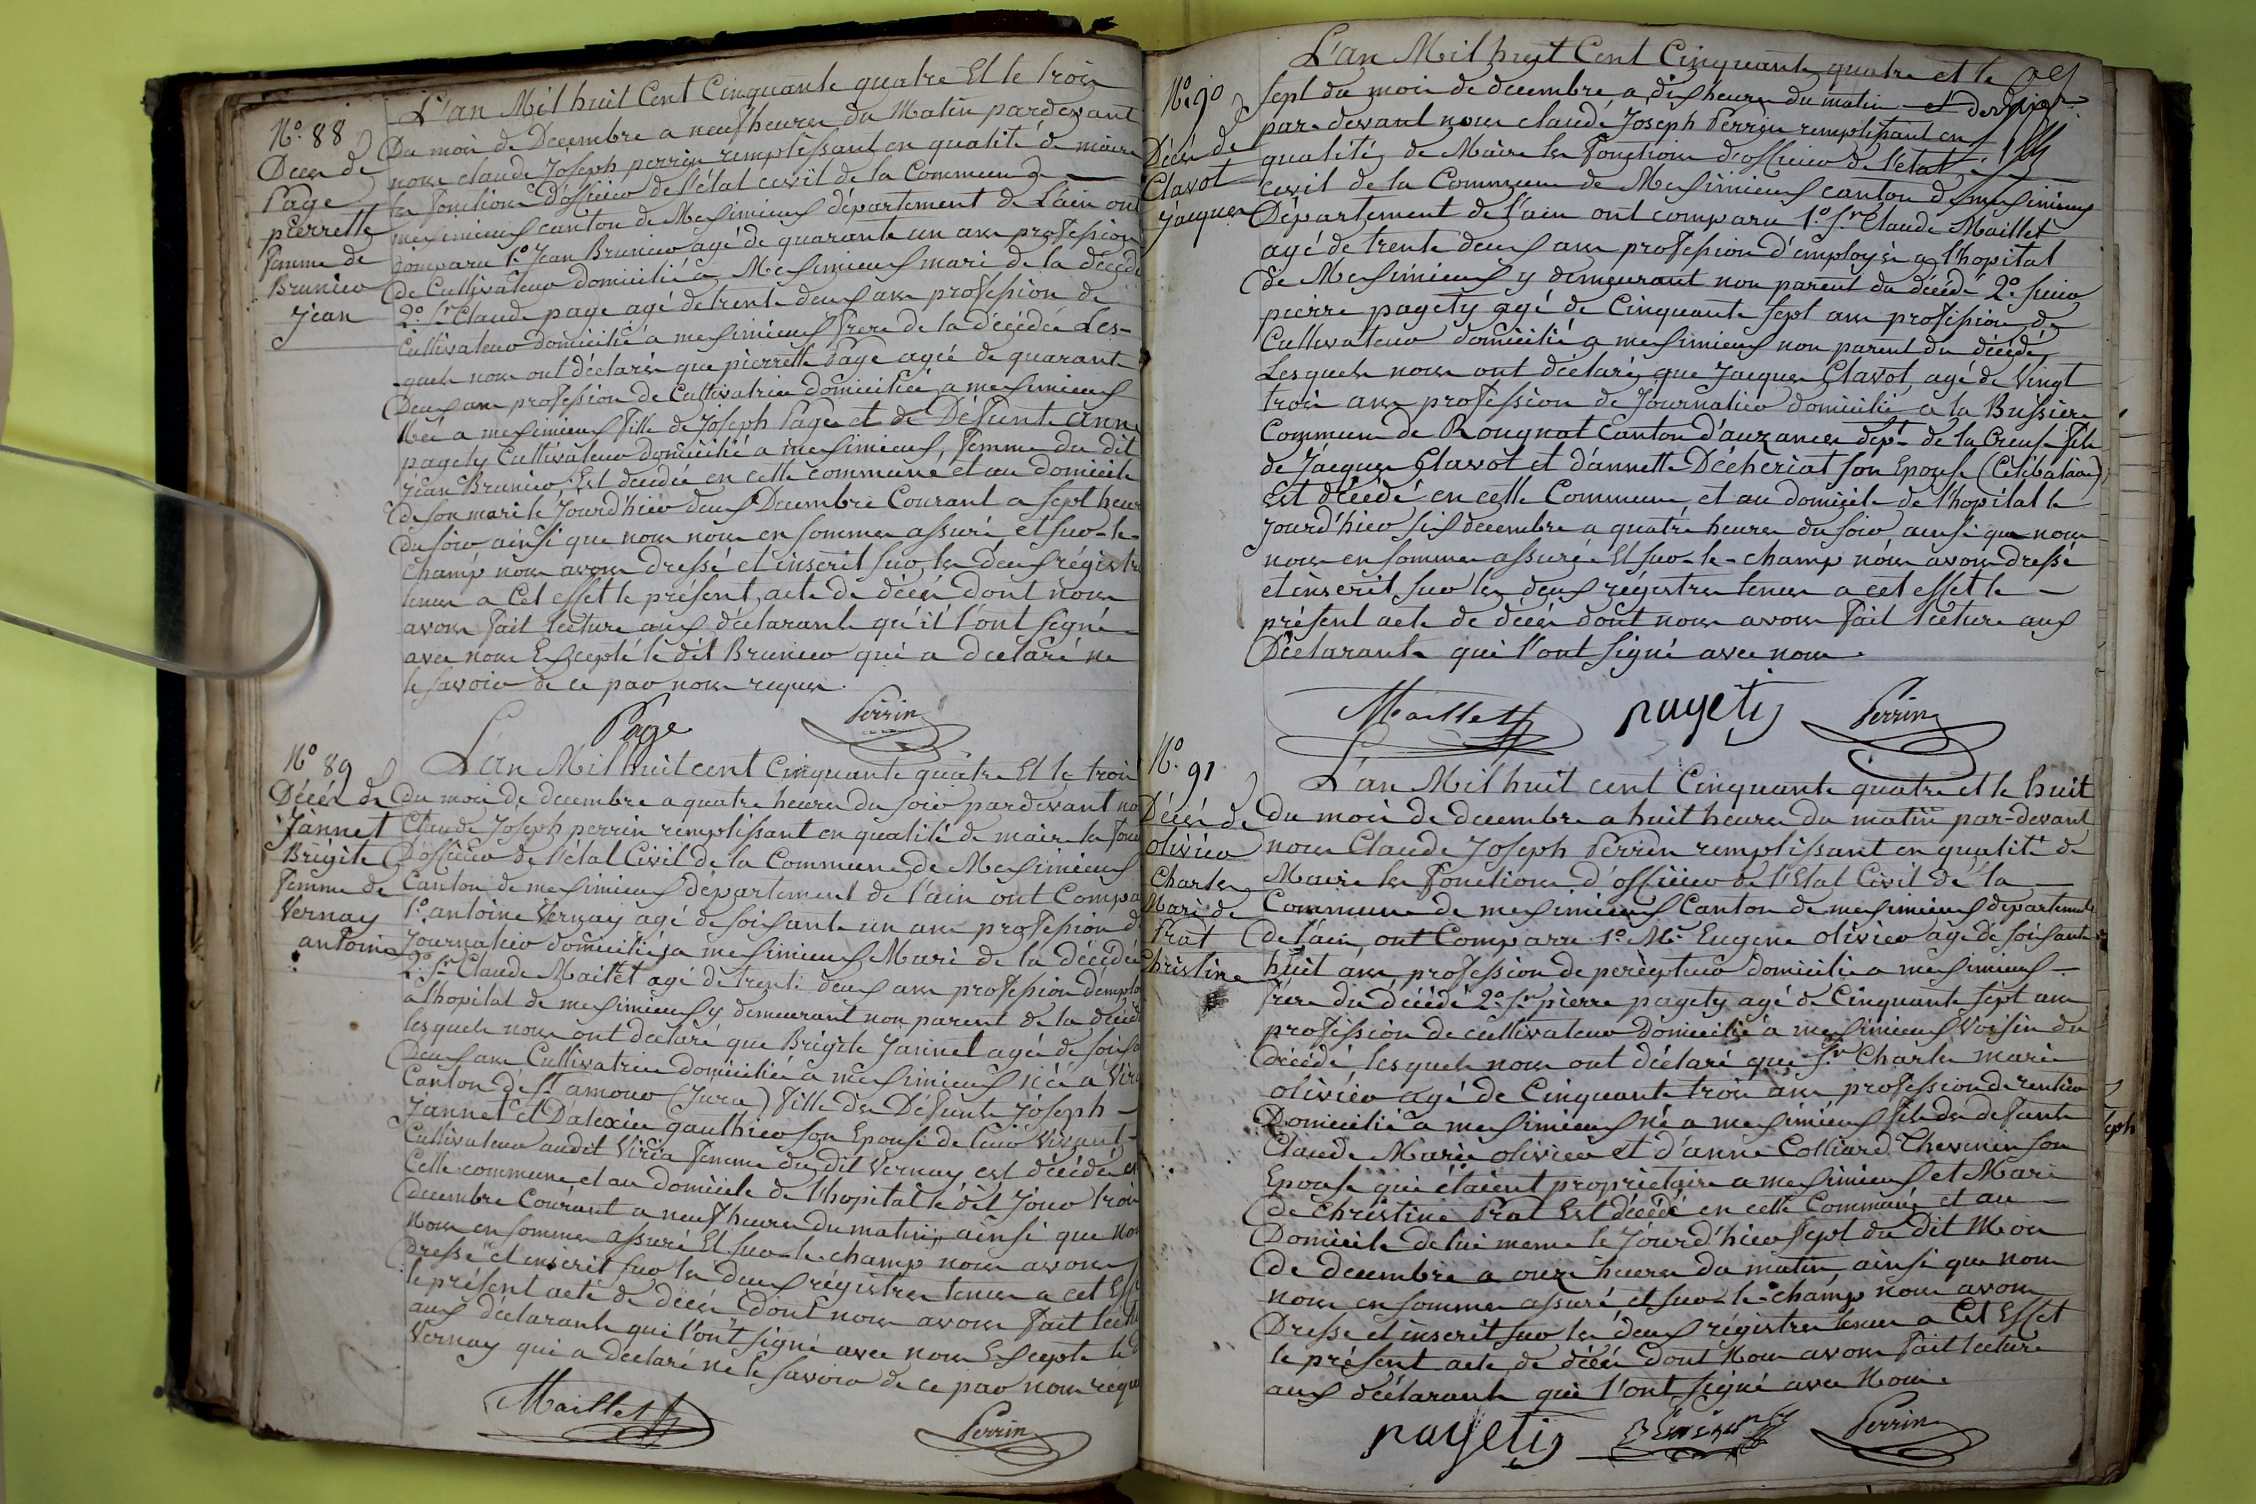 N° 88
Décès de
Page
pierrette
femme de
Brunier
Jean
L'an Mil huit Cent Cinquante quatre Et le trois
Du mois de Decembre a neuf heures du Matin pardevant
nous claude Joseph perrin remplissant en qualité de maire
les fonctions d'officier de l'état civil de la Commune de
meximieux canton de Meximieux département de L'ain ont
comparu 1° Jean Brunier agé de quarante un ans profession
de Cultivateur domicilié a Meximieux mari de la décédé
2° Sr Claude page agé de trente deux ans profession de
Cultivateur domicilié a meximieux frere de la décédée Les-
quels nous ont déclaré que pierrette Page agée de quarante
Deux ans profession de Cultivatrice domiciliée a meximieux
Née a meximieux fille de Joseph Page et de Défunte anne
pagety Cultivateur domicilié a meximieux, femme du dit
Jean Brunier Est décédée en cette commune et au domicile
de son mari le Jourd'hier deux Decembre Courant a sept heur
du soir ainsi que nous nous en sommes assuré, et sur-le-
champ nous avons dressé et inscrit sur les deux régistr
tenus a Cet effet le présent acte de décès dont nous
avons fait lecture aux déclarants qu'il l'ont signé
avec nous Excepté le dit Brunier qui a déclaré ne
le savoir de ce par nous requis.
Page
Perrin
N° 89
Décès de
Jannet
Brigite
femme de
Vernay
antoine
L'an Mil huit cent Cinquante quatre Et le trois
du mois de decembre a quatre heures du soir pardevant no
Claude Joseph perrin remplissant en qualité de maire les fonc
D'officier de l'état Civil de la Commune de Meximieux
Canton de meximieux département de l'ain ont Compa
1° antoine Vernay agé de soixante un ans profession d
Journalier domicilié a meximieux Mari de la décédée
2° Sr Claude Maillet agé de trente deux ans profession d'emplo
a l'hopital de meximieux y demeurant non parent de la décéd
lesquels nous ont déclaré que Brigite Jannet agée de soixa
Deux ans Cultivatrice domiciliée a meximieux née a Viri
Canton de St amour (Jura) fille des Défunts Joseph
Jannet et Dalexie gauthier son Epouse de leur vivant
Cultivateur audit Viria femme du dit Vernay est décédée en
Cette commune et au domicile de l'hopital le dit Jour trois
decembre Courant a neuf heures du matin, ainsi que nou
Nous en sommes assuré Et sur-le-champ nous avons
Dressé et inscrit sur les deux régistres tenus a cet Eff
le présent acte de décès dont nous avons fait lectu
aux déclarants qui l'ont signé avec nous Excepté le d
Vernay qui a déclaré ne le savoir de ce par nous requi
Maillet
Perrin
N° 90
Décès de
Clavot
Jacques
L'an Mil huit Cent Cinquante quatre et le
sept du mois de decembre a dix heures du matin et dernier
par-devant nous claude Joseph Perrin remplissant en
qualité de Maire les fonctions d'officier de l'état
civil de la Commune de Meximieux canton de meximieux
Département de l'ain ont comparu 1° Sr Claude Maillet
agé de trente deux ans profession d'employé a l'hopital
de Meximieux y demeurant non parent du décédé 2° sieur
pierre pagety agé de Cinquante sept ans profession de
Cultivateur domicilié a meximieux non parent du décédé
Lesquels nous ont déclaré que Jacques Clavot, agé de Vingt
trois ans profession de Journalier domicilié a la Bussiere
Commune de Rougnat Canton d'auzances dépt de la Creuse fils
de Jacques Clavot et d'annette Décheriat son Epouse (Célibataire)
Est décédé en cette Commune et au domicile de l'hopital le
Jourd'hier six decembre a quatre heures du soir, ainsi que nous
nous en sommes assuré Et sur-le-champ nous avons dressé
et inscrit sur les deux régistres tenus a cet effet le
présent acte de décès dont nous avons fait lecture aux
Déclarants qui l'ont signé avec nous.
Maillet
pagety
Perrin
N° 91
Décès de
olivier
Charles
Mari de
Prat
Christine
L'an Mil huit cent Cinquante quatre et le huit
du mois de decembre a huit heures du matin par-devant
nous Claude Joseph Perrin remplissant en qualité de
Maire les fonctions d'officier de l'Etat Civil de la
Commune de meximieux Canton de meximieux département
de l'ain, ont Comparu 1° Mr Eugene olivier agé de soixante
huit ans profession de percepteur domicilié a meximieux
frere du décédé 2° Sr pierre pagety agé de Cinquante sept ans
profession de cultivateur domicilié a meximieux Voisin du
décédé, lesquels nous ont déclaré que Sr Charles marie
olivier agé de Cinquante trois ans, profession de rentier
Domicilié a meximieux né a meximieux fils de defunts
Claude Marie olivier et d'anne Colliard Thevenin son
Epouse qui étaient propriétaire a meximieux et Mari
de Christine Prat Est décédé en cette Commune et au
Domicile de lui meme le Jourd'hier sept du dit Mois
de decembre a onze heures du matin, ainsi que nous
nous en sommes assuré, et sur-le-champ nous avons
Dressé et inscrit sur les deux régistres tenus a Cet Effet
le présent acte de décès dont Nous avons fait lecture
aux déclarants qui l'ont signé avec Nous.
pagety
Perrin